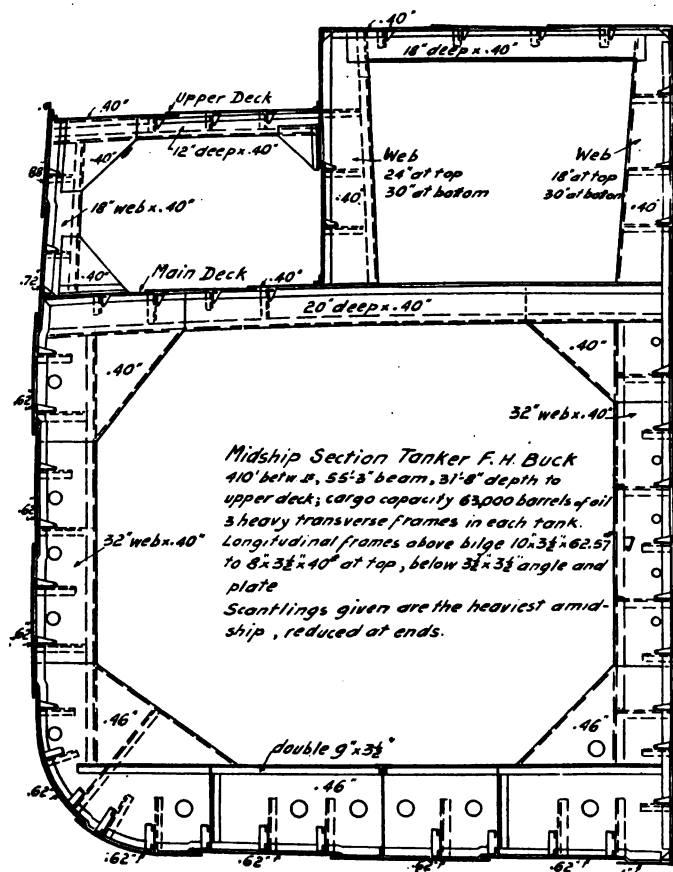 .40"
18" deep x .40"
Upper Deck
.40"
12" deep x .40"
.40"
Web
24" at top
30" at bottom
Web
18" at top
30" at bottom
.40"
.40
18" web x .40"
.40"
Main Deck
.40"
.72"
20" deep x .40"
.40"
.40"
32" web x .40"
.62"
Midship Section Tanker F. H. Buck
55'-3" beam, 31'-8" depth to
upper deck; cargo capacity 63,000 barrels of oil
3 heavy transverse frames in each tank.
Longitudinal frames above bilge 10" x 3½" x 62.57
to 8" x 3½" x 40# at top, below 3½" x 3½" angle and
plate
Scantlings given are the heaviest amid-
ship, reduced at ends.
.62
32" web x .40"
.62"
.46"
.46"
double 9" x 3½"
.46"
.62"
.62"
.62"
.62"
.62"